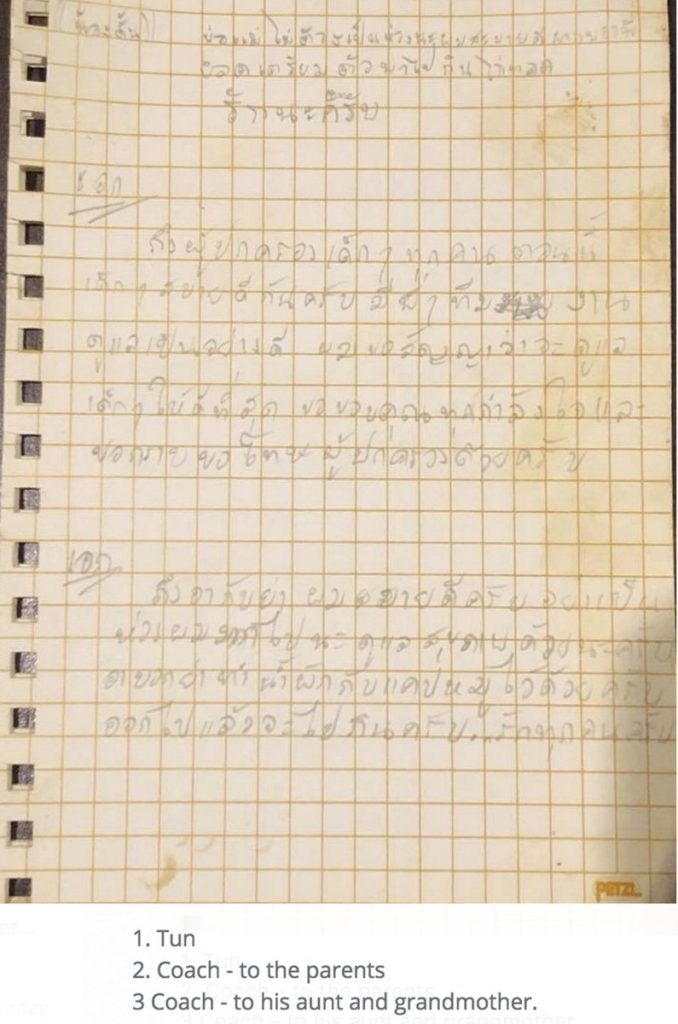 พ่อแม่ ไม่ต้องเป็นห่วงนะผมสบายดี
เตรียมตัวพาไปกินไก่ทอด
ด้วยนะครับ
เอก
ถึงผู้ปกครองเด็กๆทุกคน ตอนนี้
เด็กๆสบายดีกันครับ มีพี่ๆทีมงาน
ดูแลเป็นอย่างดี ผมขอสัญญาว่าจะดูแล
เด็กๆให้ดีที่สุด ขอขอบคุณทุกกำลังใจและ
ขอกราบขอโทษผู้ปกครองด้วยครับ
เอก
ถึงอากับย่า ผมสบายดีครับ อย่าเป็น
ห่วงผมมากไปนะ ดูแลสุขภาพด้วยนะครับ
อาบอกย่าทำน้ำผักกับแคปหมูไว้ด้วยครับ
ออกไปแล้วจะไปกินครับ...รักทุกคนครับ
PETZL
1. Tun
2. Coach - to the parents
3 Coach - to his aunt and grandmother.